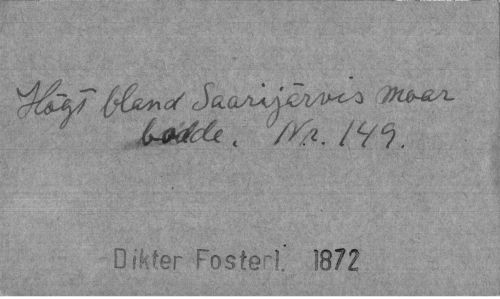 Högt bland Saarijärvis moar
bodde. Nr. 149.
Dikter Fosterl. 1872